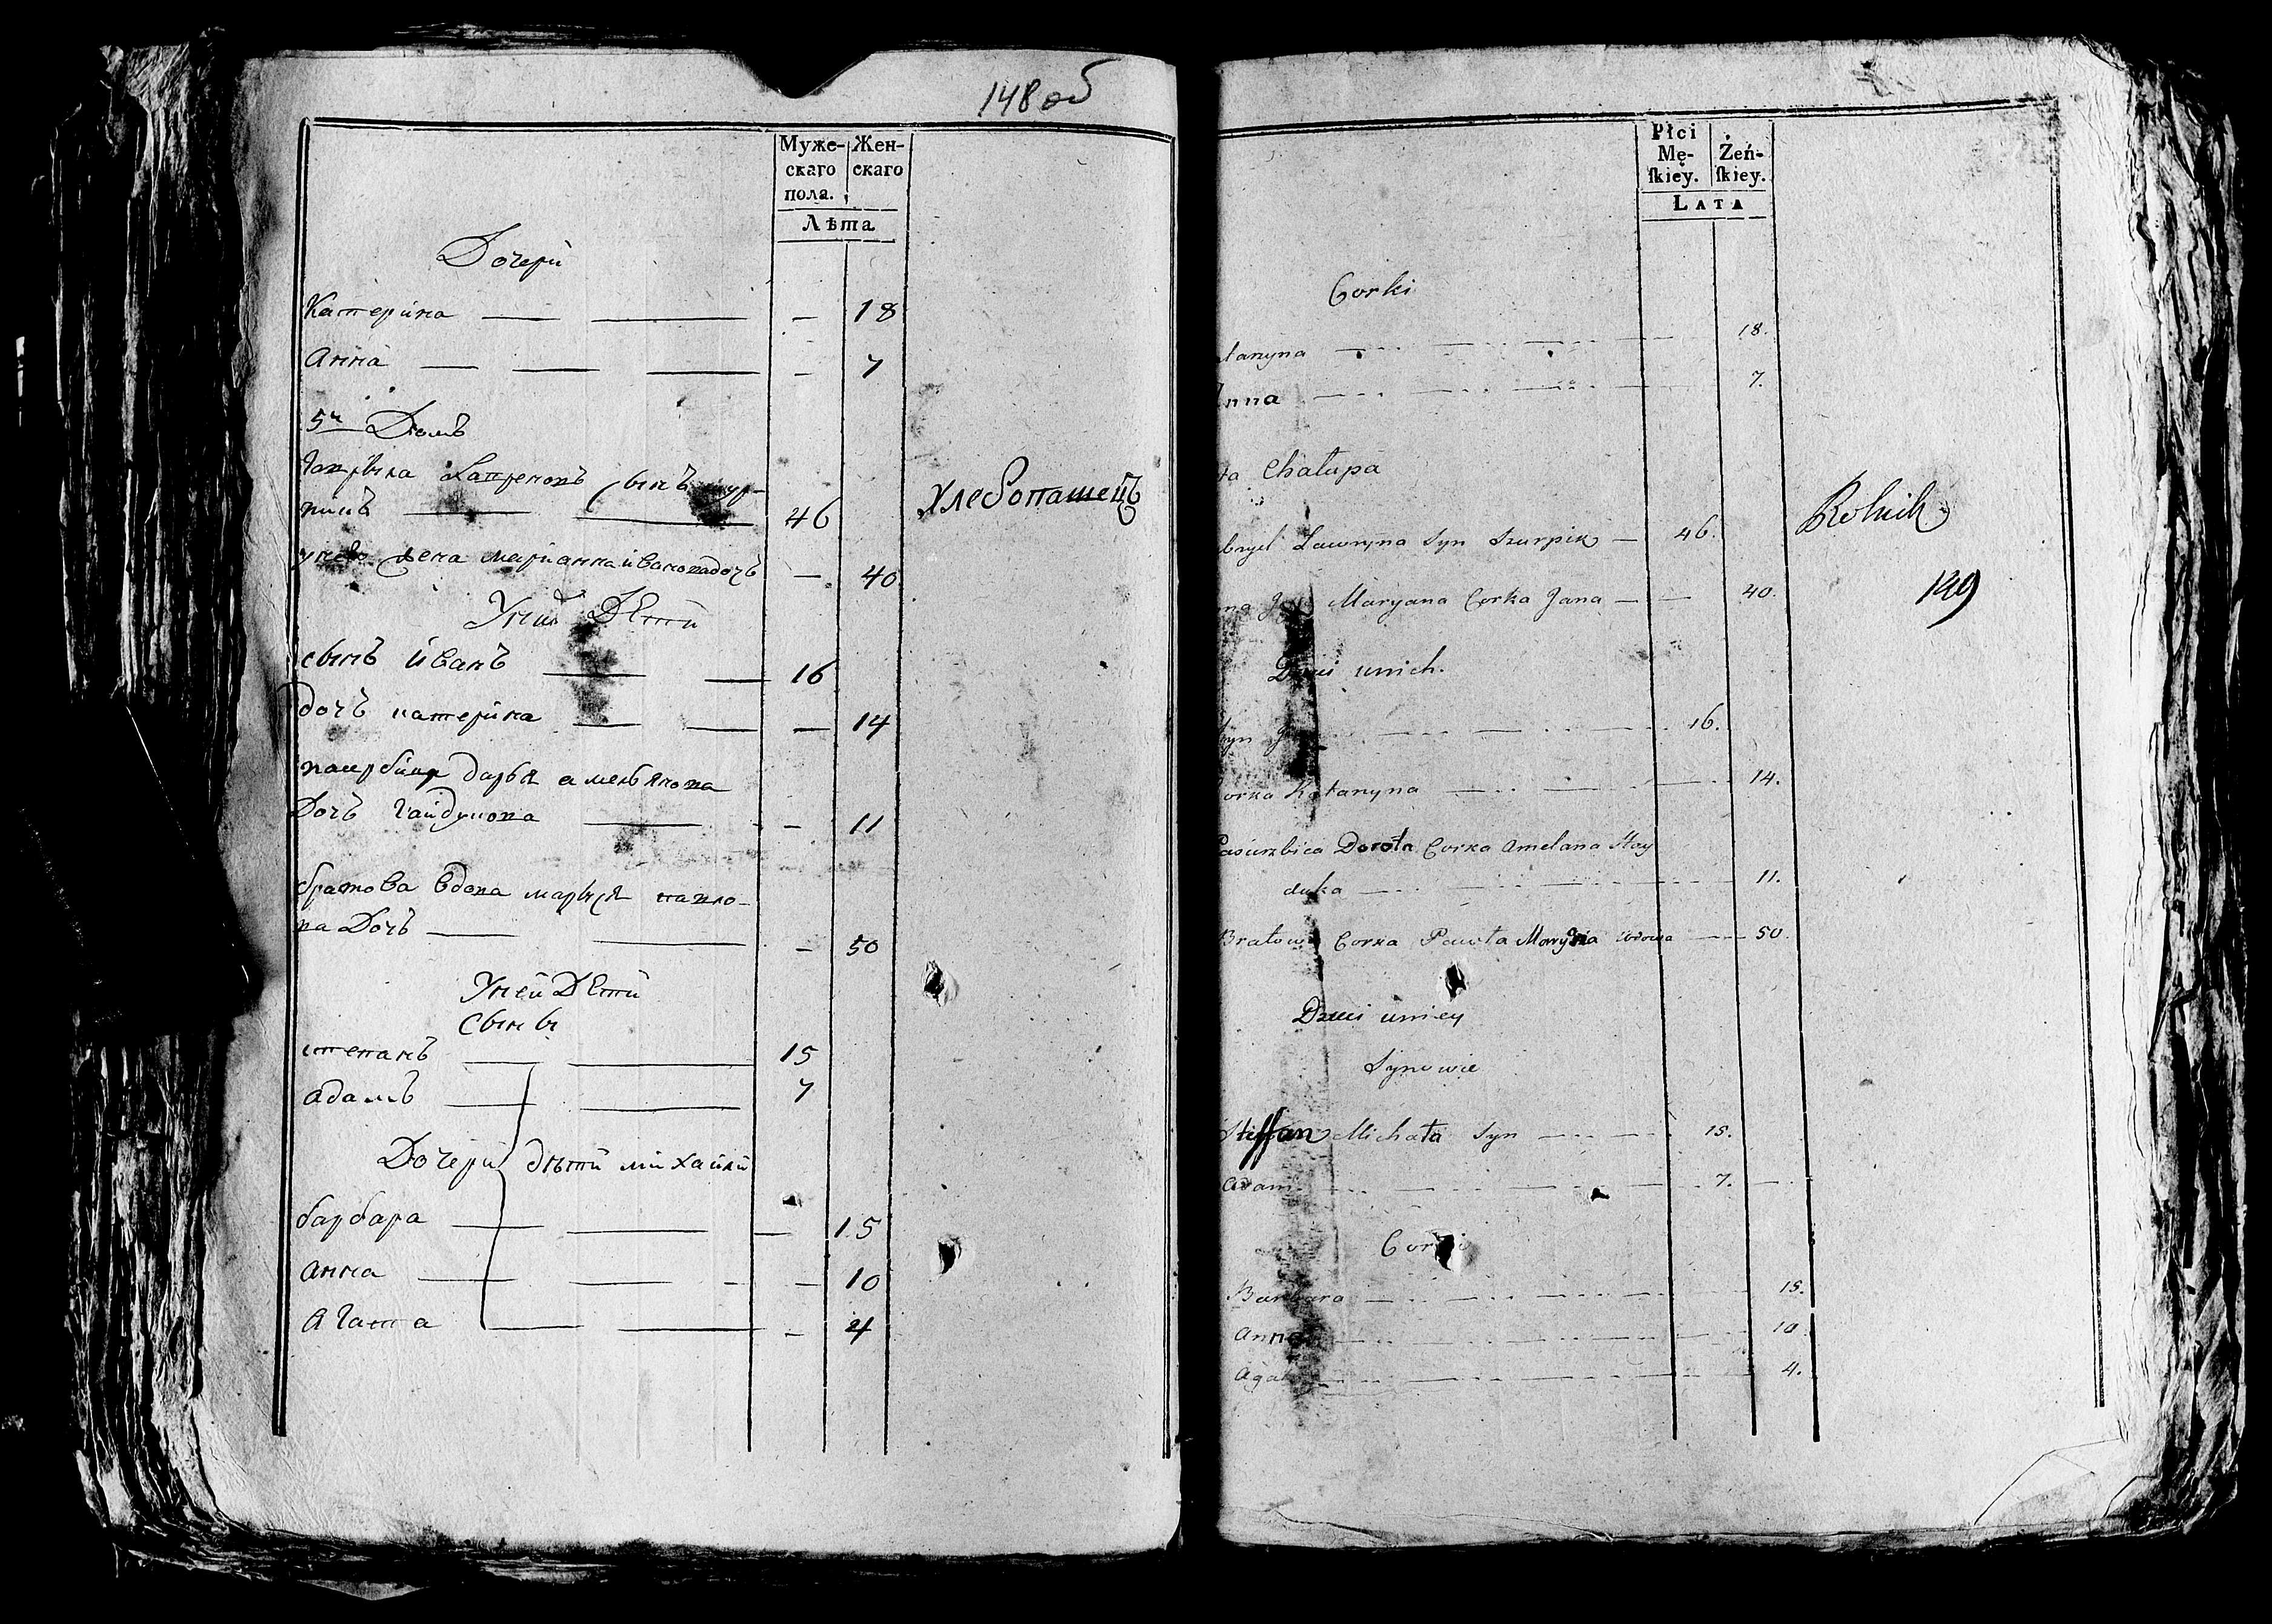 148 об
Муже-
скаго
пола.
Жен-
скаго
Лѣта
Дочери
Катерина 18
Анна 7
5й Домъ
Гаврыла Лавреновъ сынъ
46
Хлебопашецъ
жена марианна иванова дочъ 40
У них Дети
сынъ иванъ 16
дочъ катерина 14
дарья амельянова
Дочъ Гайдукова 11
братова вдова марыся павло-
ва Дочъ 50
У ней Дети
Сыны
степанъ 15
адамъ 7
Дочери дѣти михайли
барбара 15
анна 10
Агата 4
Płci
Mę-
ſkiey.
Żeń-
ſkiey.
LATA
Corki
tarzyna 18.
nna 7.
ta Chałupa
bryel Ławryna Syn Szurpik 46.
Rolnik
na Maryana Corka Jana 40.
149
Dzieci unich.
Syn 16.
orka Katarzyna 14.
Pasierzbica Dorota Corka Amelana Hay
duka 11.
Bratowa Corka Pawła Marysia wdowa 50.
Dzieci uniey
Synowie
Steffan Michała Syn 15.
Adam 7.
Corki
Barbara 15.
Anna 10.
Agata 4.